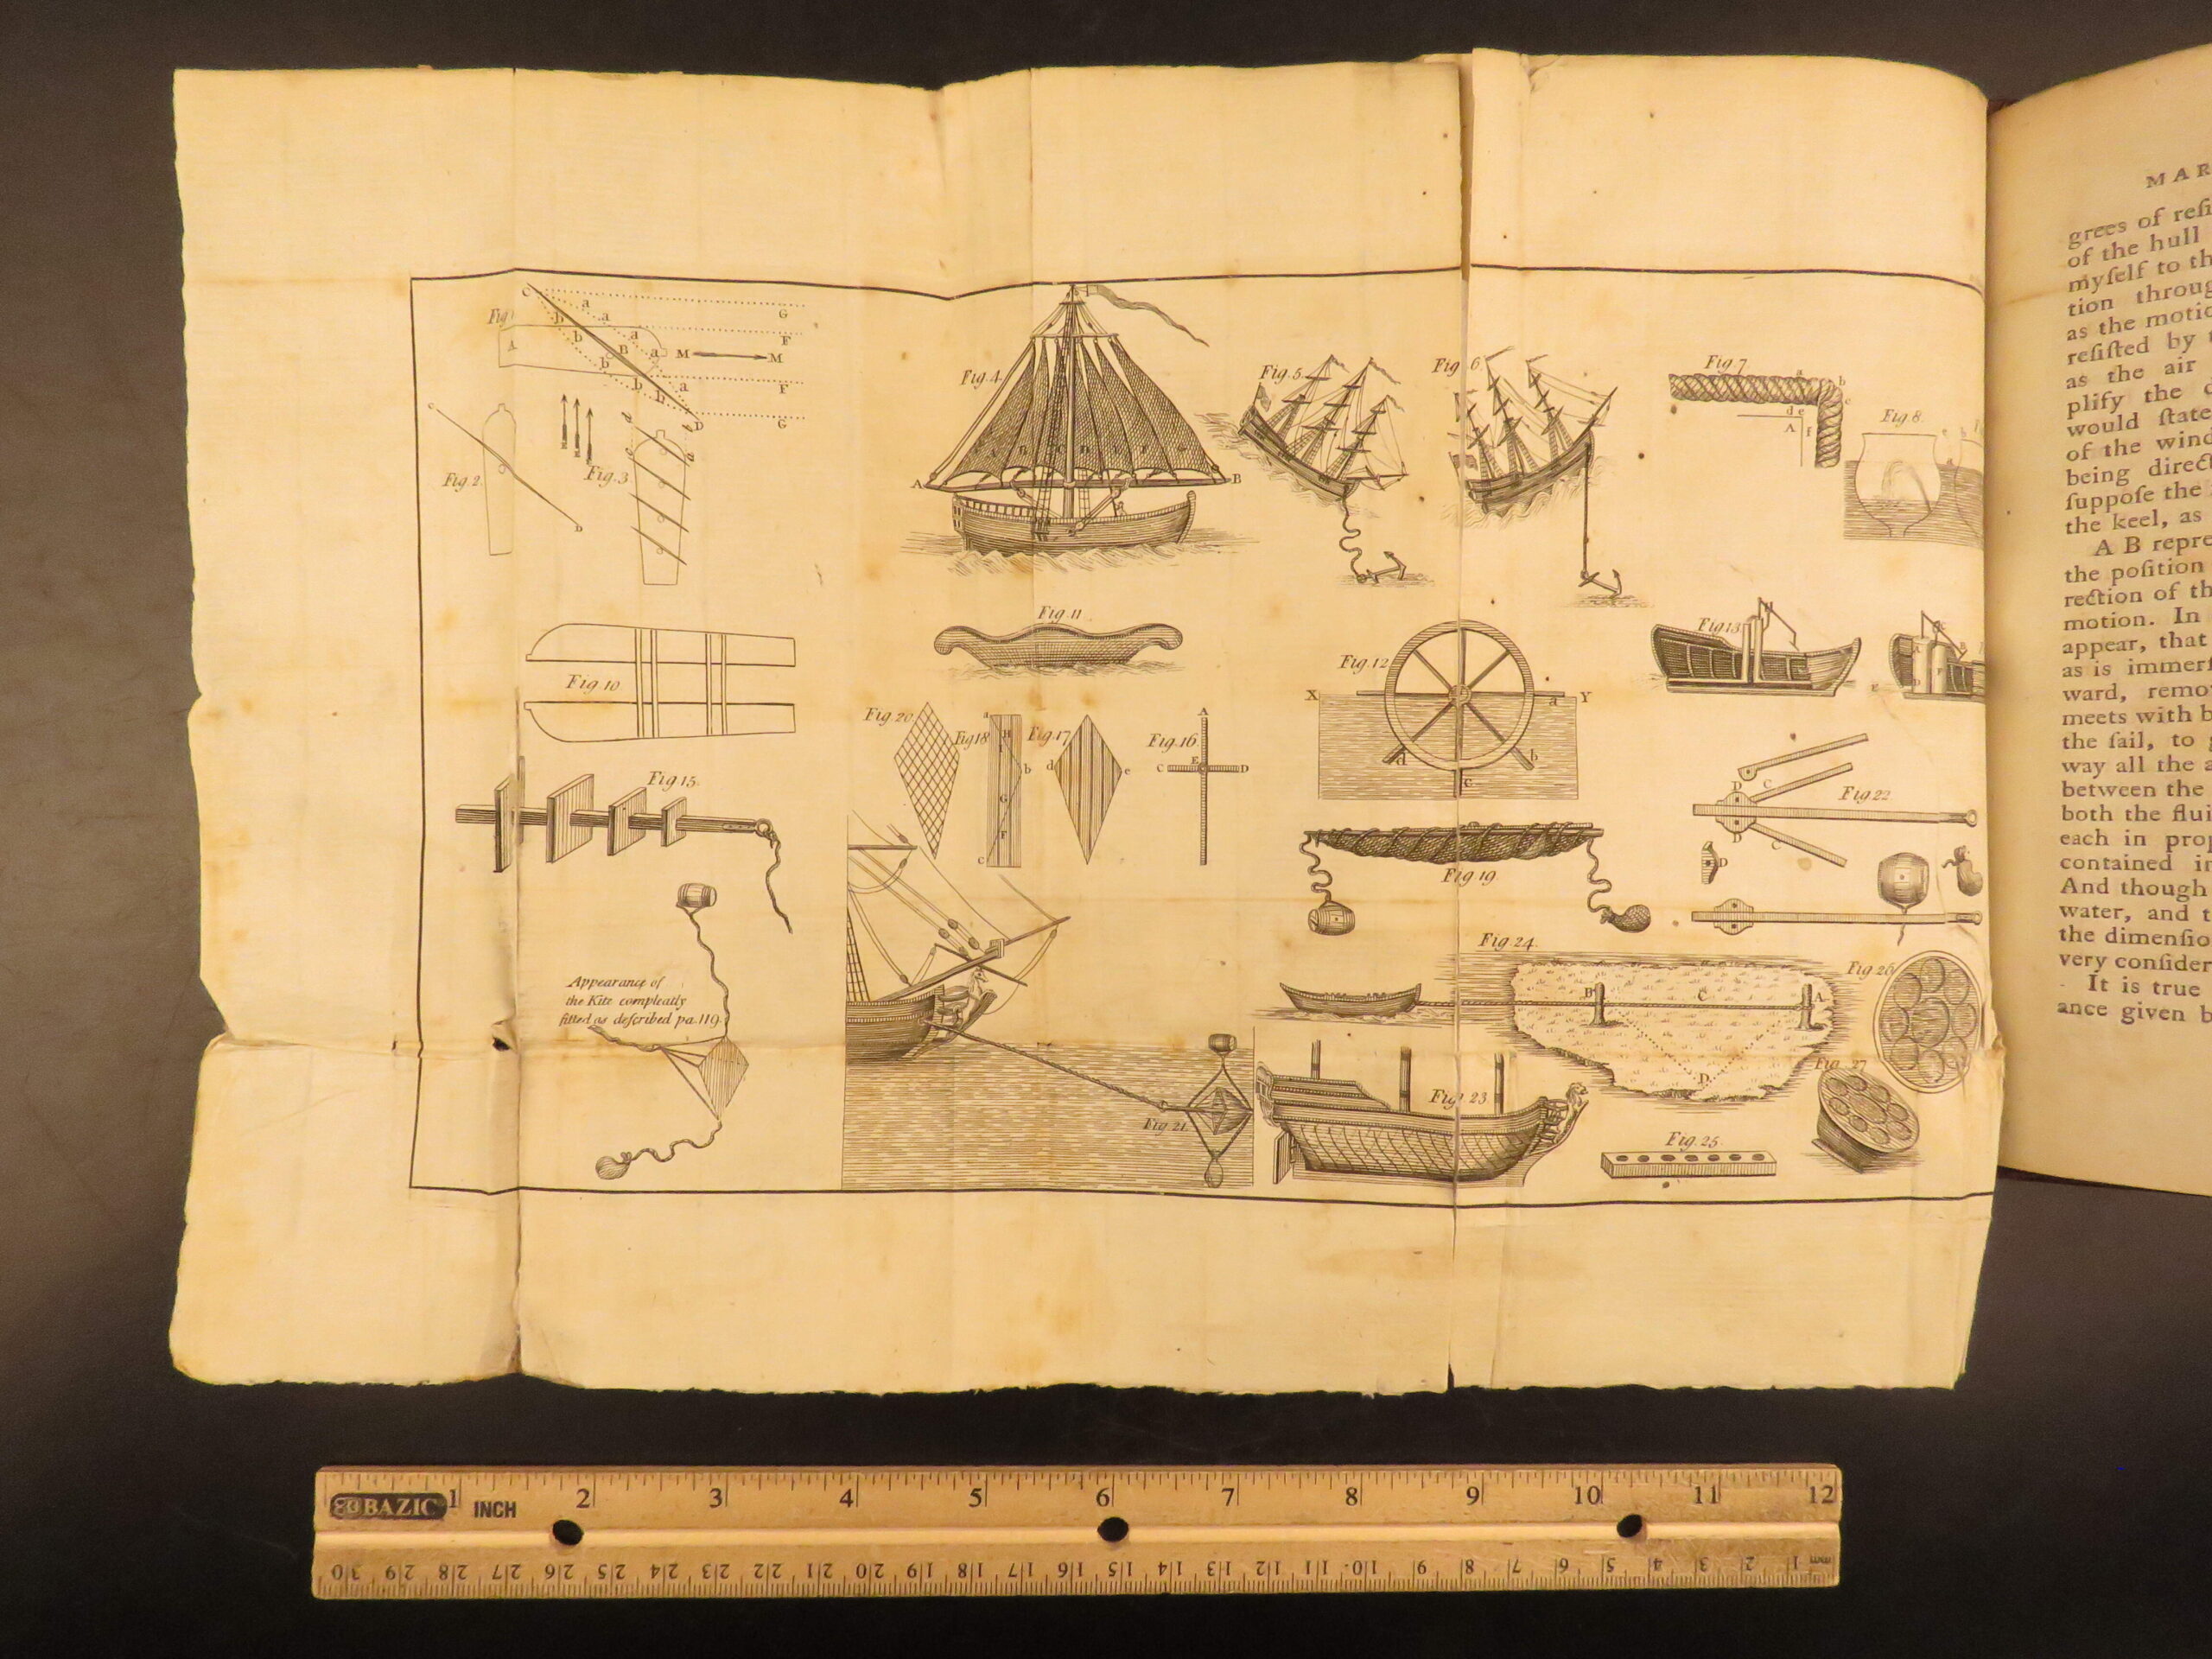 Fig. 4.
Fig. 5.
Fig. 6.
Fig. 7
Fig. 8.
Fig. 2.
Fig. 3
C
a
b
G
a
b
a
F
A
b
B
a
M
M
b
a
F
b
D
G
A
B
d e
A
f
Fig. 10
Fig. 11
Fig. 12
Fig. 13
X
Y
a
b
c
d
Fig. 20.
Fig 18
Fig. 17
Fig. 16
A
C
E
D
a
b
G
F
c
d
e
Fig. 15.
Fig. 22
D
C
D
C
D
Fig 19
Appearance of
the Kite compleatly
fitted as deſcribed pa. 119.
Fig. 21.
Fig. 24.
B
C
A
D
Fig. 26
Fig. 23
Fig. 27
Fig. 25.
MAR
grees of reſi
of the hull
myſelf to th
tion throug
as the motio
reſiſted by
as the air
plify the
would ſtate
of the wind
being direct
ſuppoſe the
the keel, as
A B repre
the poſition
rection of th
motion. In
appear, that
as is immerſ
ward, remo
meets with b
the ſail, to
way all the a
between the
both the flui
each in prop
contained in
And though
water, and t
the dimenſio
very conſider
It is true
ance given b
BAZIC 1 INCH 2 3 4 5 6 7 8 9 10 11 12
30 29 28 27 26 25 24 23 22 21 20 19 18 17 16 15 14 13 12 11 10 9 8 7 6 5 4 3 2 1 mm